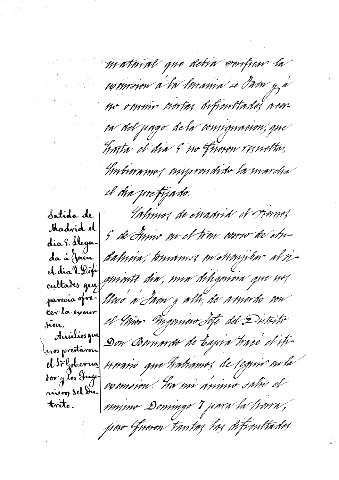 material que debia verificar la
excursion á la Serrania de Jaen y, á
no ocurrir ciertas dificultades acer-
ca del pago de la consignacion, que
hasta el dia 5 no fueron resueltas,
hubieramos emprendido la marcha
el dia prefijado.
Salida de
Madrid el
dia 5. Llega-
da á Jaen
el dia 7. Difi-
cultades que
parecia ofre-
cer la excur-
sion.
Auxilios que
nos prestaron
el Sr. Goberna-
dor y los Inge-
nieros del Dis-
trito.
Salimos de Madrid el Viernes
5 de Junio en el tren correo de An-
dalucia, tomamos en Menjibar al si-
guiente dia, una diligencia que nos
llevó á Jaen y allí, de acuerdo con
el Señor Ingeniero Jefe del Distrito
Don Bernardo de tracé el iti-
nerario que habiamos de seguir en la
excursion. Era mi ánimo salir el
mismo Domingo 7 para la Sierra,
pero fueron tantas las dificultades